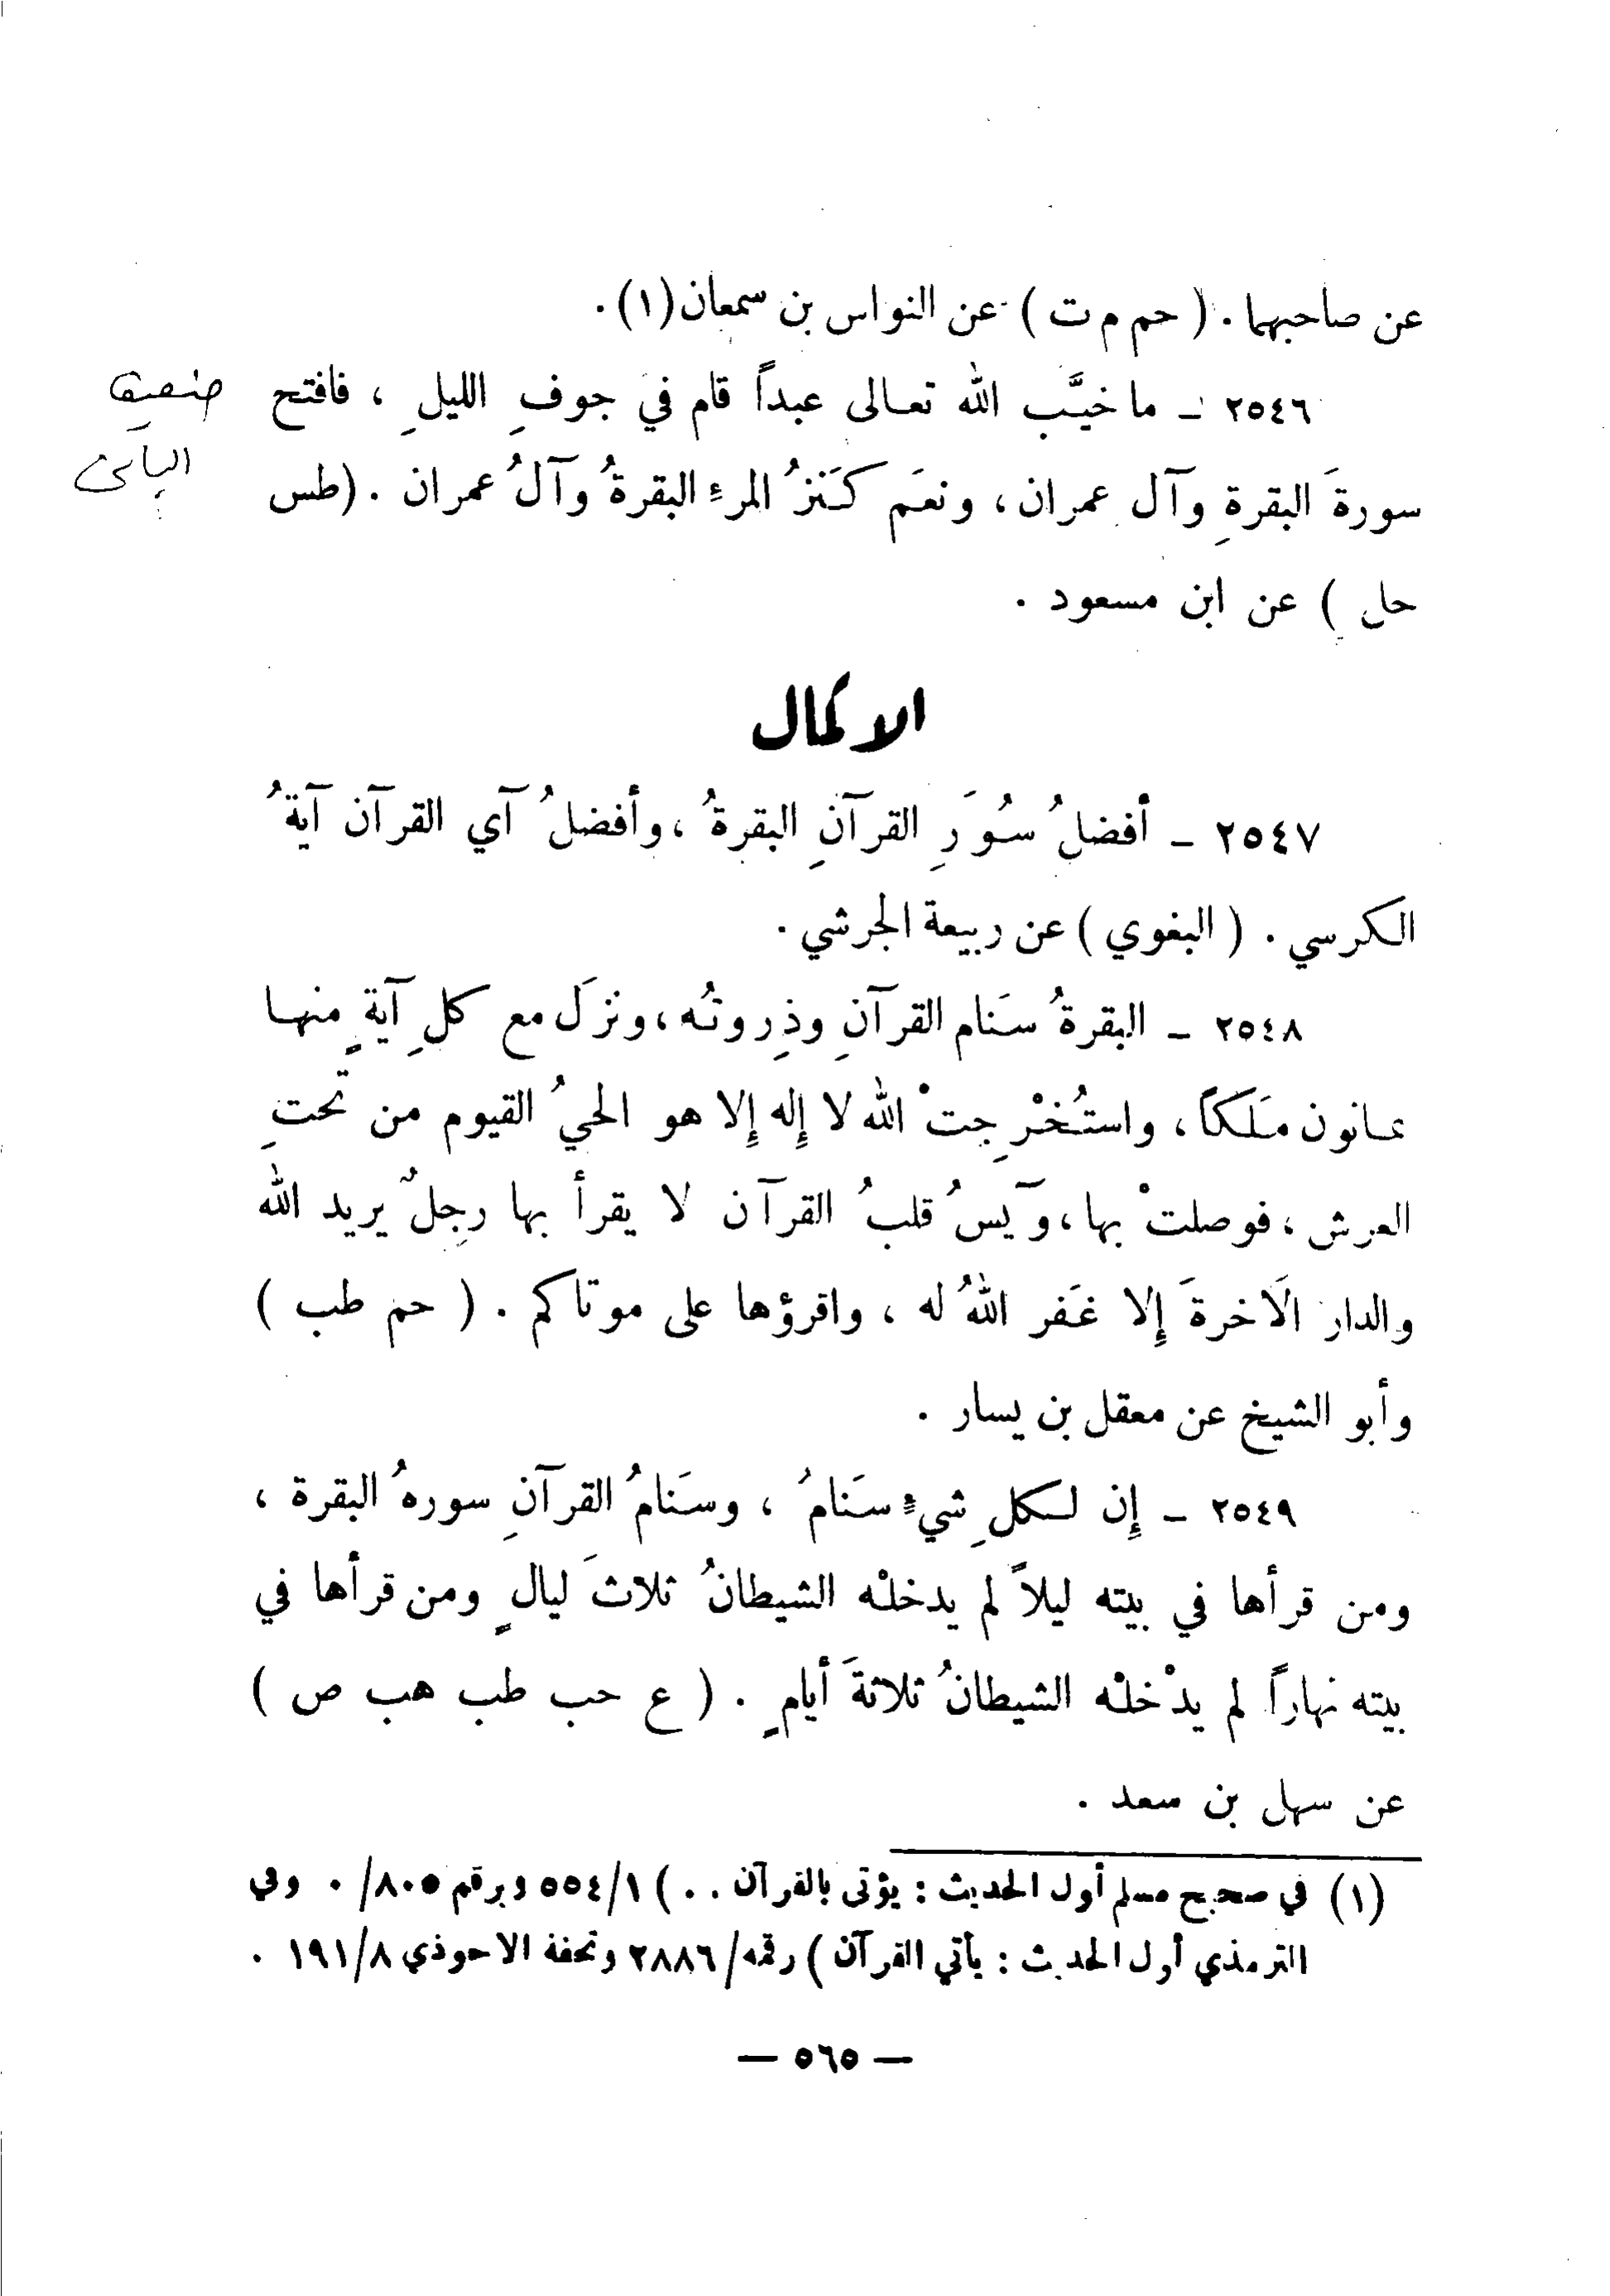 عن صاحبهما . ( حم م ت ) عن النواس بن سمعان (١) .
٢٥٤٦ - ما خيَّب الله تعالى عبداً قام في جوفِ الليلِ ، فافتح
سورةَ البقرةِ وآل عمران ، ونعَم كَنَزُ المرءِ البقرةُ وآلُ عمران . (طس
حل ) عن ابن مسعود .
ضعيف
الالباني
الاكمال
٢٥٤٧ - أفضلُ سُوَرِ القرآنِ البقرةُ ، وأفضلُ آي القرآن آيةُ
الكرسي . ( البغوي ) عن ربيعة الجرشي .
٢٥٤٨ - البقرةُ سَنام القرآنِ وذِروتُه ، ونزَل مع كلِ آيةٍ منها
ثمانون مَلَكاً ، واستُخْرِجتْ الله لا إله إلا هو الحيُ القيوم من تحتِ
العرش ، فوصلتْ بها ، ويٓسُ قلبُ القرآن لا يقرأ بها رجلٌ يريد الله
والدار الآخرةَ إلا غَفر اللهُ له ، واقرؤها على موتاكم . ( حم طب )
وأبو الشيخ عن معقل بن يسار .
٢٥٤٩ - إن لكلِ شيءٍ سَنامُ ، وسَنامُ القرآنِ سورهُ البقرة ،
ومن قرأها في بيته ليلاً لم يدخلْه الشيطانُ ثلاثَ ليالٍ ومن قرأها في
بيته نهاراً لم يدْخلْه الشيطانُ ثلاثةَ أيامٍ . ( ع حب طب هب ص )
عن سهل بن سعد .
(١) في صحيح مسلم أول الحديث : يؤتى بالقرآن . . ) ٥٥٤/١ وبرقم ٨٠٥/ . وفي
الترمذي أول الحديث : يأتي القرآن ) رقمه/٢٨٨٦ وتحفة الاحوذي ١٩١/٨ .
— ٥٦٥ —